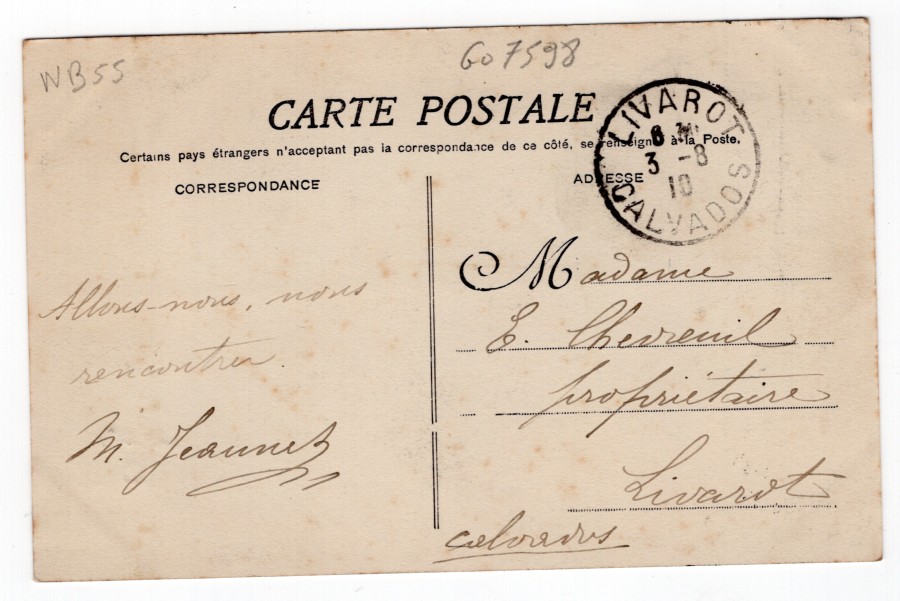 WB55
607598
CARTE POSTALE
Certains pays étrangers n'acceptant pas la correspondance de ce côté, se renseigner à la Poste.
CORRESPONDANCE
ADRESSE
LIVAROT
3 -8
10
CALVADOS
Allons-nous, nous
rencontrer
M. Jeannet
Madame
E. Chevreuil
propriétaire
Livarot
Calvados